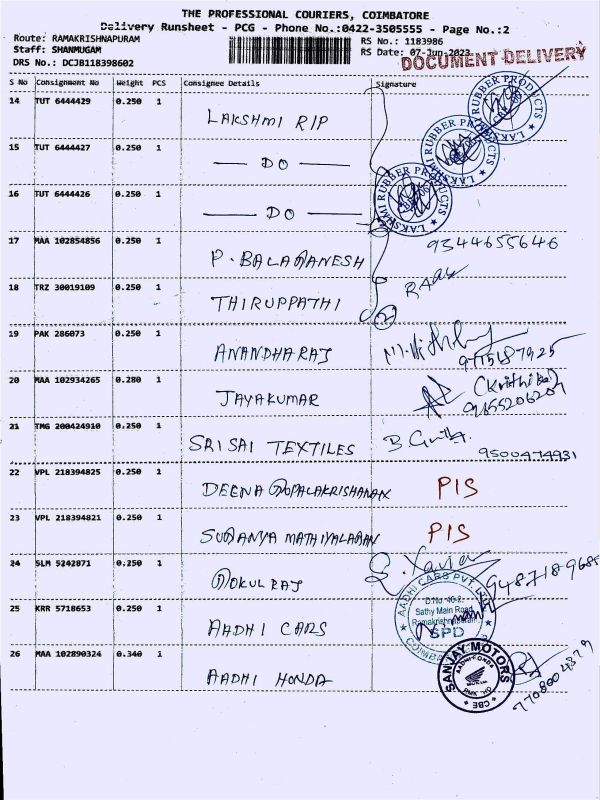 THE PROFESSIONAL COURIERS, COIMBATORE
Delivery Runsheet - PCG - Phone No.:0422-3505555 - Page No.:2
Route: RAMAKRISHNAPURAM
Staff: SHANMUGAM
DRS No.: DCJB118398602
RS No.: 1183986
RS Date: 07-Jun-2023
DOCUMENT DELIVERY
S No Consignment No Weight PCS Consignee Details Signature
14 TUT 6444429 0.250 1 LAKSHMI RIP
LAKSHMI RUBBER PRODUCTS
15 TUT 6444427 0.250 1 — DO —
LAKSHMI RUBBER PRODUCTS
16 TUT 6444426 0.250 1 — DO —
LAKSHMI RUBBER PRODUCTS
17 MAA 102854856 0.250 1 P. BALAGANESH 9344655646
18 TRZ 30019109 0.250 1 THIRUPPATHI
2
19 PAK 286073 0.250 1 ANANDHARAJ 9715187925
20 MAA 102934265 0.280 1 JAYAKUMAR
21 TMG 200424910 0.250 1 SRI SAI TEXTILES 9500474931
22 VPL 218394825 0.250 1 DEENA GOPALAKRISHANAN PIS
23 VPL 218394821 0.250 1 SUGANYA MATHIYALAGAN PIS
24 SLM 5242871 0.250 1 GOKULRAJ S. Xavier 9487189685
25 KRR 5718653 0.250 1 AADHI CARS
AADHI CARS PVT. LTD.
D.No. 40-2,
Sathy Main Road,
Ramakrishnapuram
SPD
26 MAA 102890324 0.340 1 AADHI HONDA 7708004379
SANJAY MOTORS
AADHI HONDA
RMK HO
CBE